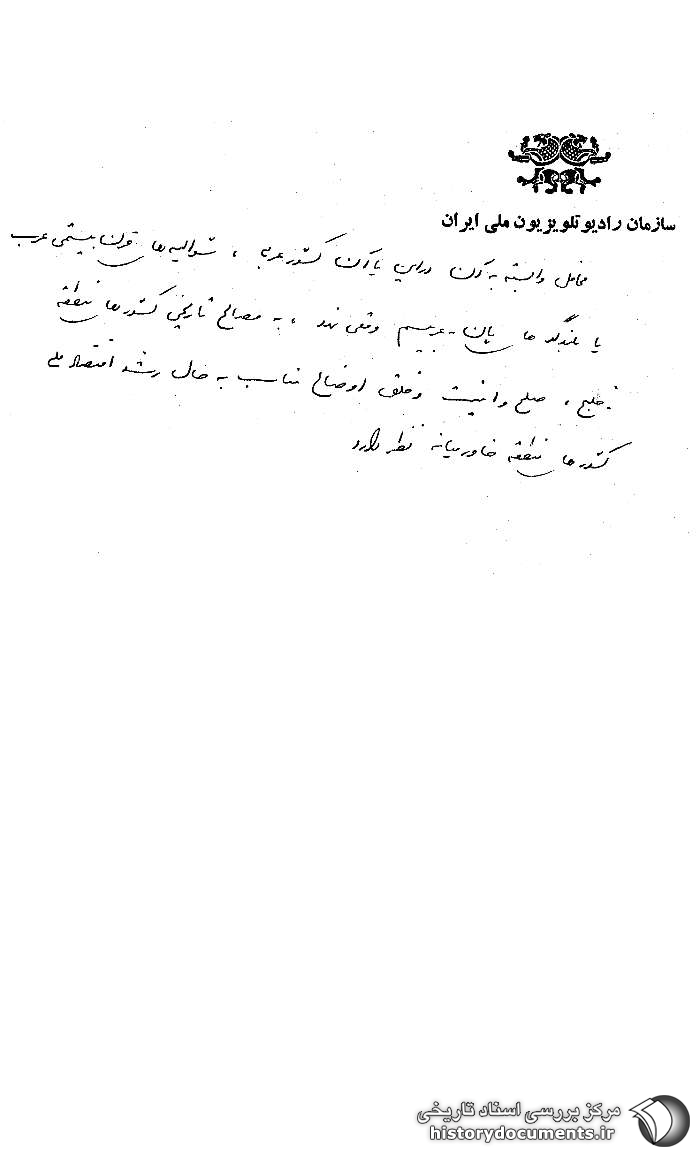 سازمان رادیو تلویزیون ملی ایران
محافل وابسته به آن در این یا آن کشور عربی ، شوالیه‌های قرن بیستمی عرب
یا بلندگوهای پان-عربیسم وقعی نهد ، به مصالح تاریخی کشورهای منطقه
خلیج ، صلح و امنیت و خلق اوضاع مناسب به حال رشد اقتصاد ملی
کشورهای منطقه خاورمیانه نظر دارد
مرکز بررسی اسناد تاریخی
historydocuments.ir